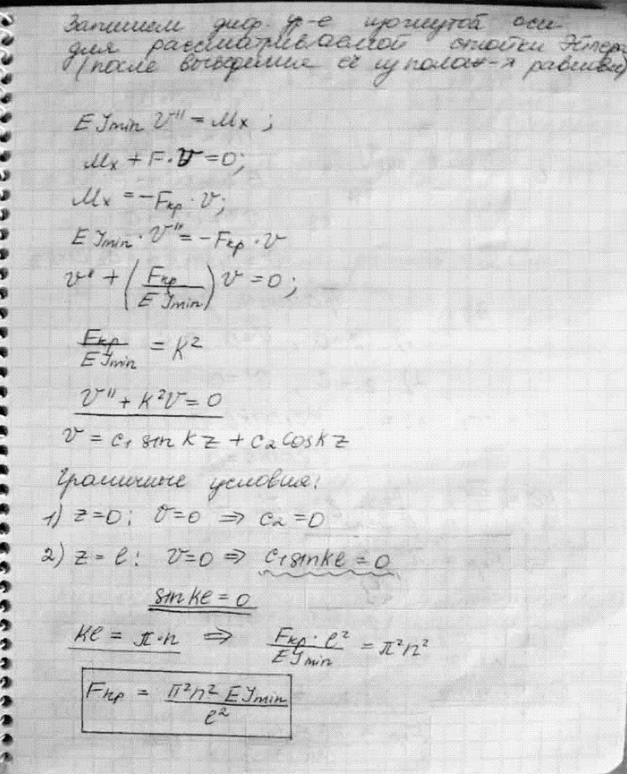 Запишем диф. ур-е изогнутой оси
для рассматриваемой стойки Эйлера
(после выведения её из полож-я равновес)
EJmin v'' = Mx ;
Mx + F·v = 0;
Mx = -Fкр · v;
EJmin · v'' = -Fкр · v
v'' + (Fкр / EJmin) v = 0;
Fкр / EJmin = K²
v'' + K²v = 0
v = c₁ sin kz + c₂ cos kz
Граничные условия:
1) z=0: v=0 ⇒ c₂=0
2) z=l: v=0 ⇒ c₁ sin kl = 0
sin kl = 0
kl = π·n ⇒ Fкр · l² / EJmin = π²n²
Fкр = π²n² EJmin / l²